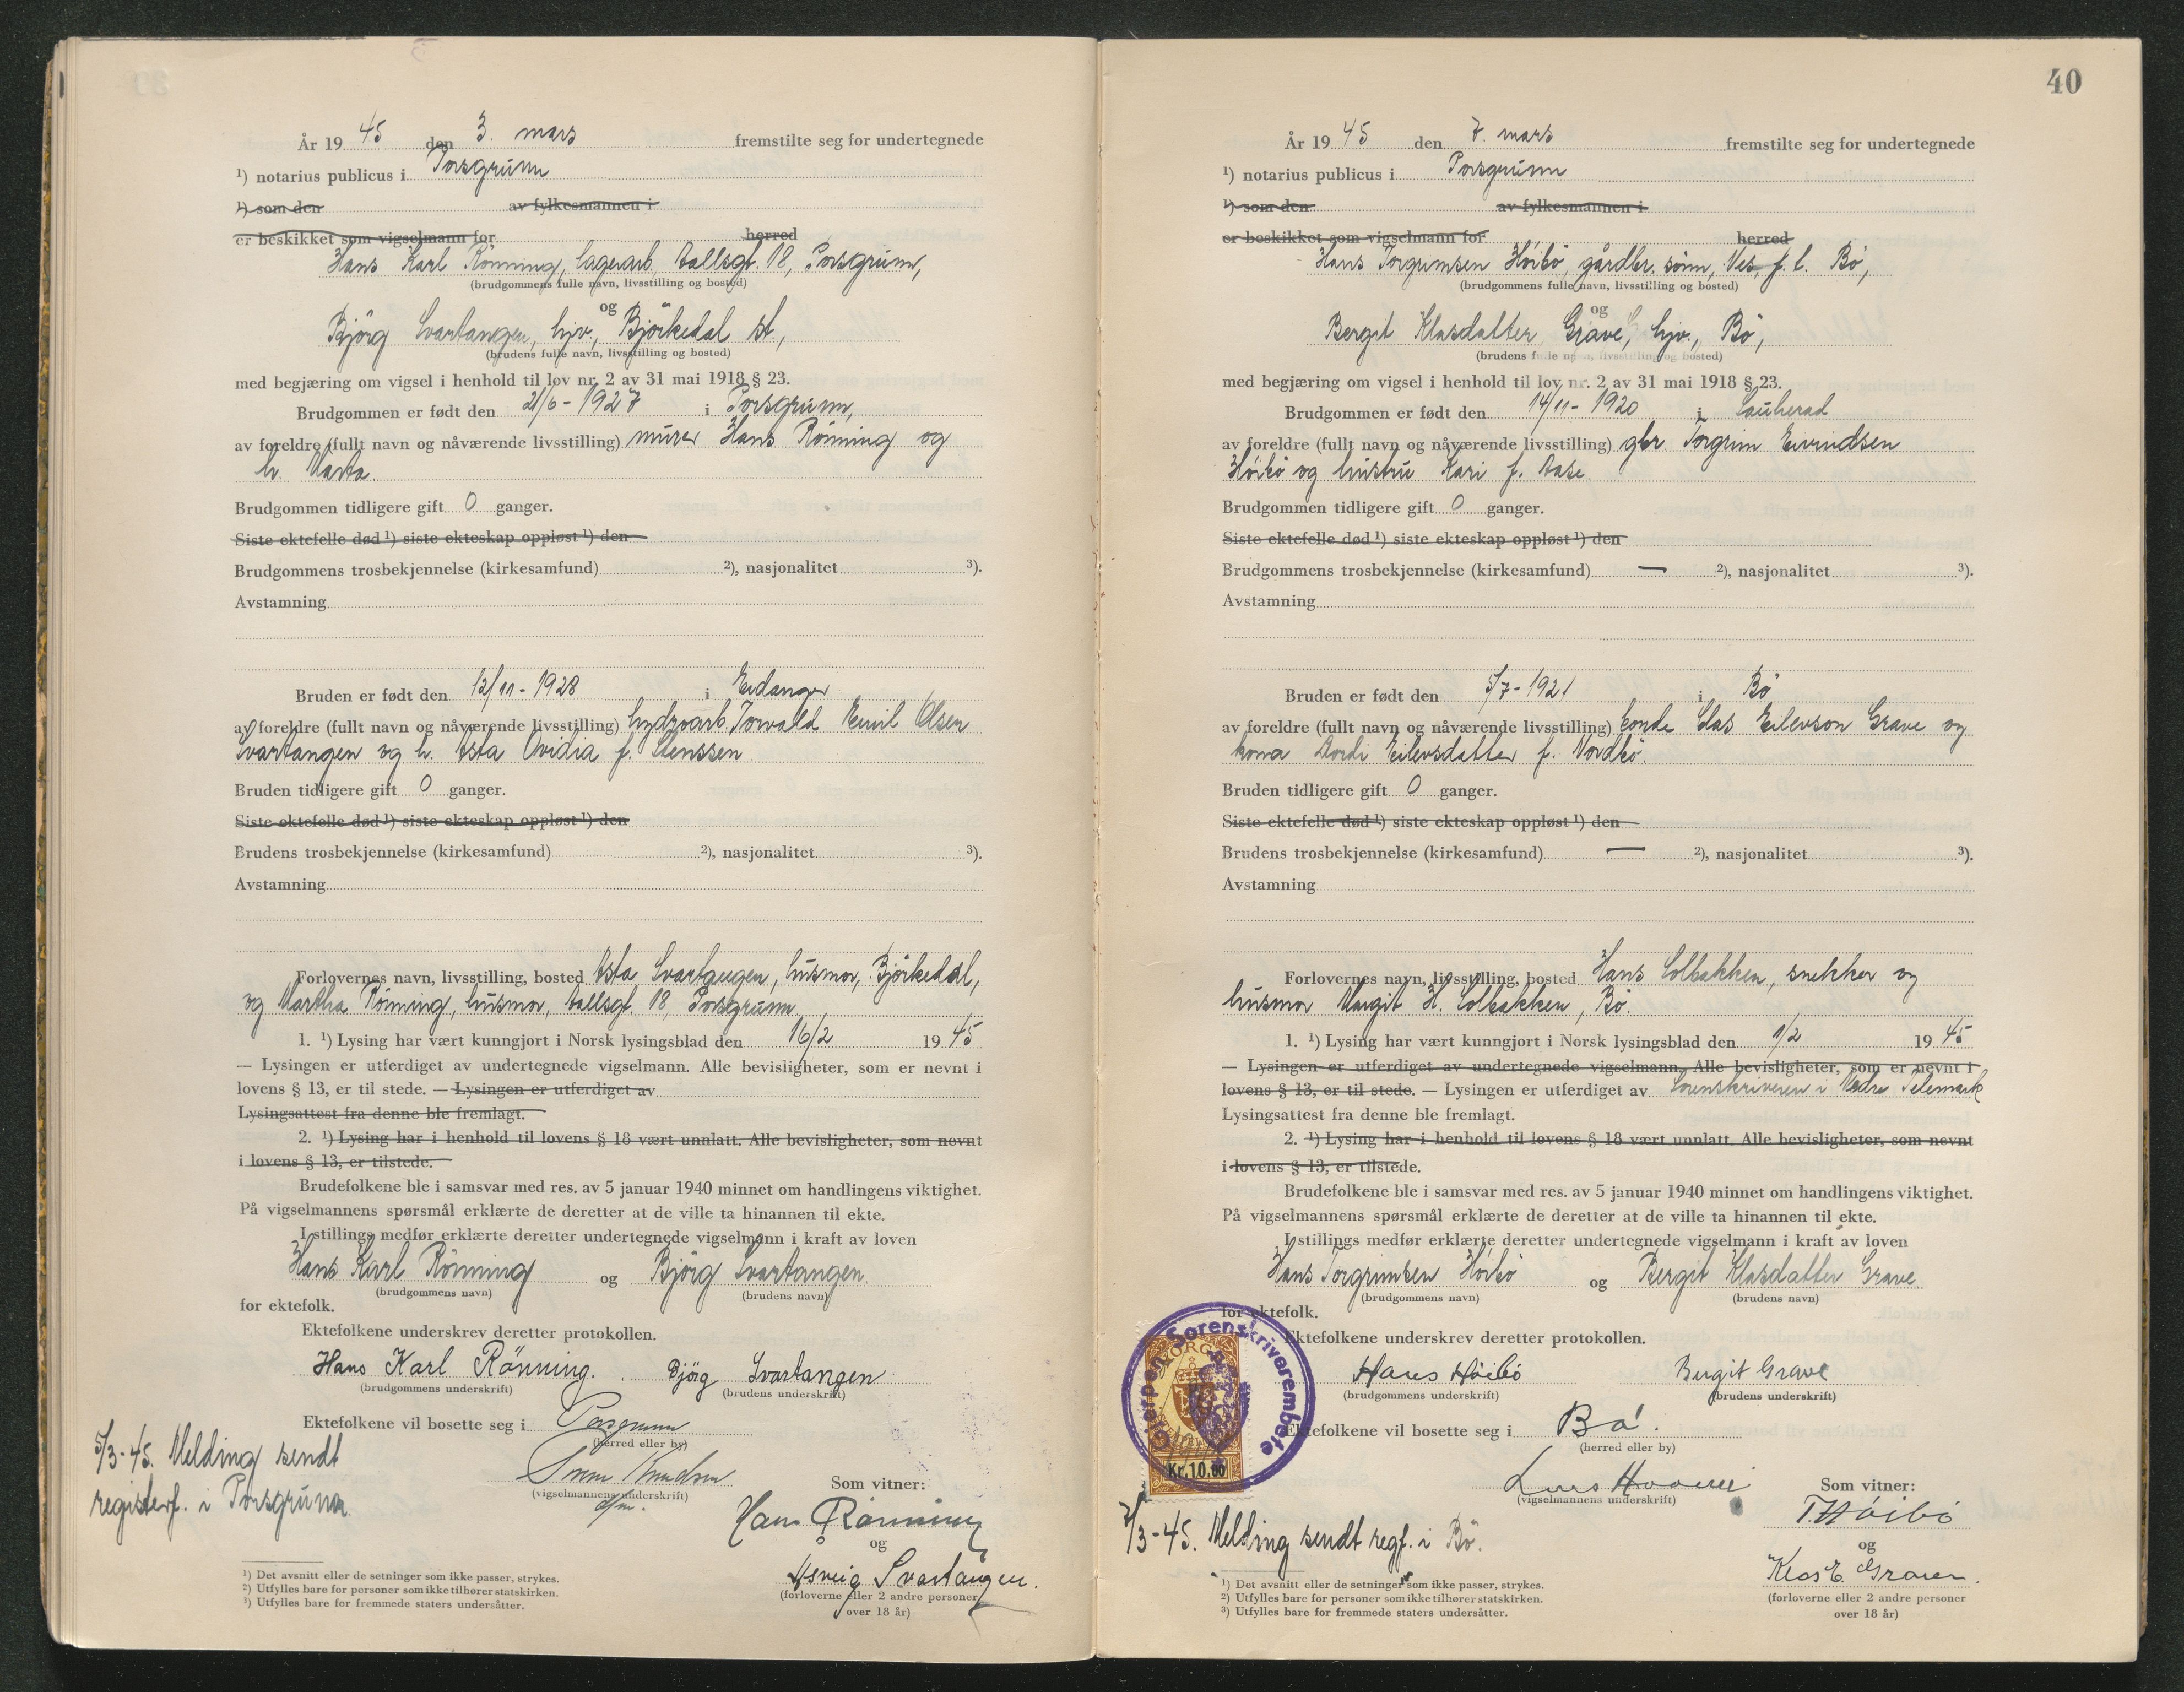 År 19 45 den 3. mars fremstilte seg for undertegnede
1) notarius publicus i Porsgrunn
1) som den av fylkesmannen i
er beskikket som vigselmann for herred
Hans Karl Rönning, lagerarb. Aallsgt. 18, Porsgrunn,
(brudgommens fulle navn, livsstilling og bosted)
og
Björg Svartangen, hjv., Björkedal st.,
(brudens fulle navn, livsstilling og bosted)
med begjæring om vigsel i henhold til lov nr. 2 av 31 mai 1918 § 23.
Brudgommen er født den 21/6 - 1927 i Porsgrunn,
av foreldre (fullt navn og nåværende livsstilling) murer Hans Rönning og
h. Marta.
Brudgommen tidligere gift 0 ganger.
Siste ektefelle død 1) siste ekteskap oppløst 1) den
Brudgommens trosbekjennelse (kirkesamfund) 2), nasjonalitet 3).
Avstamning
Bruden er født den 12/11 - 1928 i Eidanger
av foreldre (fullt navn og nåværende livsstilling) hydroarb. Torvald Emil Olsen
Svartangen og h. Asta Ovidia f. Stenssen.
Bruden tidligere gift 0 ganger.
Siste ektefelle død 1) siste ekteskap oppløst 1) den
Brudens trosbekjennelse (kirkesamfund) 2), nasjonalitet 3).
Avstamning
Forlovernes navn, livsstilling, bosted Asta Svartangen, husmor, Björkedal,
og Martha Rönning, husmor, Aallsgt. 18, Porsgrunn
1. 1) Lysing har vært kunngjort i Norsk lysingsblad den 16/2 19 45
— Lysingen er utferdiget av undertegnede vigselmann. Alle bevisligheter, som er nevnt i
lovens § 13, er til stede. — Lysingen er utferdiget av
Lysingsattest fra denne ble fremlagt.
2. 1) Lysing har i henhold til lovens § 18 vært unnlatt. Alle bevisligheter, som nevnt
i lovens § 13, er tilstede.
Brudefolkene ble i samsvar med res. av 5 januar 1940 minnet om handlingens viktighet.
På vigselmannens spørsmål erklærte de deretter at de ville ta hinannen til ekte.
I stillings medfør erklærte deretter undertegnede vigselmann i kraft av loven
Hans Karl Rönning og Björg Svartangen
(brudgommens navn) (brudens navn)
for ektefolk.
Ektefolkene underskrev deretter protokollen.
Hans Karl Rönning. Björg Svartangen
(brudgommens underskrift) (brudens underskrift)
Ektefolkene vil bosette seg i Porsgrunn
(herred eller by)
5/3-45. Melding sendt
registerf. i Porsgrunn.
Knudsen
(vigselmannens underskrift)
dfm.
Som vitner:
Hans Rönning
og
Svartangen.
(forloverne eller 2 andre personer
over 18 år)
1) Det avsnitt eller de setninger som ikke passer, strykes.
2) Utfylles bare for personer som ikke tilhører statskirken.
3) Utfylles bare for fremmede staters undersåtter.
40
År 19 45 den 7. mars fremstilte seg for undertegnede
1) notarius publicus i Porsgrunn
1) som den av fylkesmannen i
er beskikket som vigselmann for herred
Hans Torgrimsen Höibö, gårdbr. sönn, Nes, f. l. Bö,
(brudgommens fulle navn, livsstilling og bosted)
og
Bergit Klasdatter Grave, hjv., Bö,
(brudens fulle navn, livsstilling og bosted)
med begjæring om vigsel i henhold til lov nr. 2 av 31 mai 1918 § 23.
Brudgommen er født den 14/11 - 1920 i Sauherad
av foreldre (fullt navn og nåværende livsstilling) gbr Torgrim Eivindsen
Höibö og hustru Kari f. Aase
Brudgommen tidligere gift 0 ganger.
Siste ektefelle død 1) siste ekteskap oppløst 1) den
Brudgommens trosbekjennelse (kirkesamfund) — 2), nasjonalitet 3).
Avstamning
Bruden er født den 5/7 - 1921 i Bö
av foreldre (fullt navn og nåværende livsstilling) bonde Klas Eilevson Grave og
kona Dordi Eilevsdatter f. Nordbö.
Bruden tidligere gift 0 ganger.
Siste ektefelle død 1) siste ekteskap oppløst 1) den
Brudens trosbekjennelse (kirkesamfund) — 2), nasjonalitet 3).
Avstamning
Forlovernes navn, livsstilling, bosted Hans Solbakken, snekker og
husmor Margit H. Solbakken, Bö.
1. 1) Lysing har vært kunngjort i Norsk lysingsblad den 1/2 19 45
— Lysingen er utferdiget av undertegnede vigselmann. Alle bevisligheter, som er nevnt i
lovens § 13, er til stede. — Lysingen er utferdiget av Sorenskriveren i Nedre Telemark
Lysingsattest fra denne ble fremlagt.
2. 1) Lysing har i henhold til lovens § 18 vært unnlatt. Alle bevisligheter, som nevnt
i lovens § 13, er tilstede.
Brudefolkene ble i samsvar med res. av 5 januar 1940 minnet om handlingens viktighet.
På vigselmannens spørsmål erklærte de deretter at de ville ta hinannen til ekte.
I stillings medfør erklærte deretter undertegnede vigselmann i kraft av loven
Hans Torgrimsen Höibö og Bergit Klasdatter Grave
(brudgommens navn) (brudens navn)
for ektefolk.
Ektefolkene underskrev deretter protokollen.
Hans Höibö Bergit Grave
(brudgommens underskrift) (brudens underskrift)
Ektefolkene vil bosette seg i Bö.
(herred eller by)
Gjerpen Sorenskriverembete
NORGE
Kr. 10.00
Lars
(vigselmannens underskrift)
7/3-45. Melding sendt regf. i Bö.
Som vitner:
T. Höibö
og
Klas E. Graver.
(forloverne eller 2 andre personer
over 18 år)
1) Det avsnitt eller de setninger som ikke passer, strykes.
2) Utfylles bare for personer som ikke tilhører statskirken.
3) Utfylles bare for fremmede staters undersåtter.